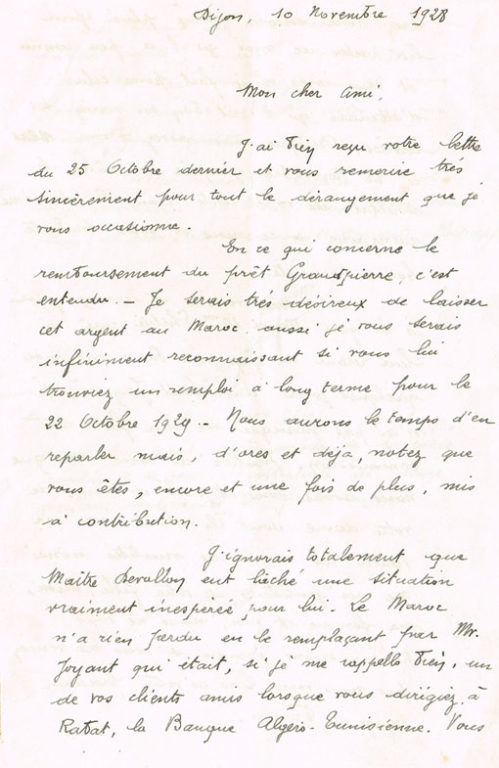 Dijon, 10 Novembre 1928
Mon cher ami,
J'ai bien reçu votre lettre
du 25 Octobre dernier et vous remercie très
sincèrement pour tout le dérangement que je
vous occasionne.
En ce qui concerne le
remboursement du prêt Grandpierre, c'est
entendu. — Je serais très désireux de laisser
cet argent au Maroc aussi je vous serais
infiniment reconnaissant si vous lui
trouviez un remploi à long terme pour le
22 Octobre 1929. — Nous aurons le temps d'en
reparler mais, d'ores et déjà, notez que
vous êtes, encore et une fois de plus, mis
à contribution.
J'ignorais totalement que
Maître Devallon eut lâché une situation
vraiment inespérée pour lui. Le Maroc
n'a rien perdu en le remplaçant par Mr.
Joyant qui était, si je me rappelle bien, un
de vos clients amis lorsque vous dirigiez, à
Rabat, la Banque Algéro-Tunisienne. Vous